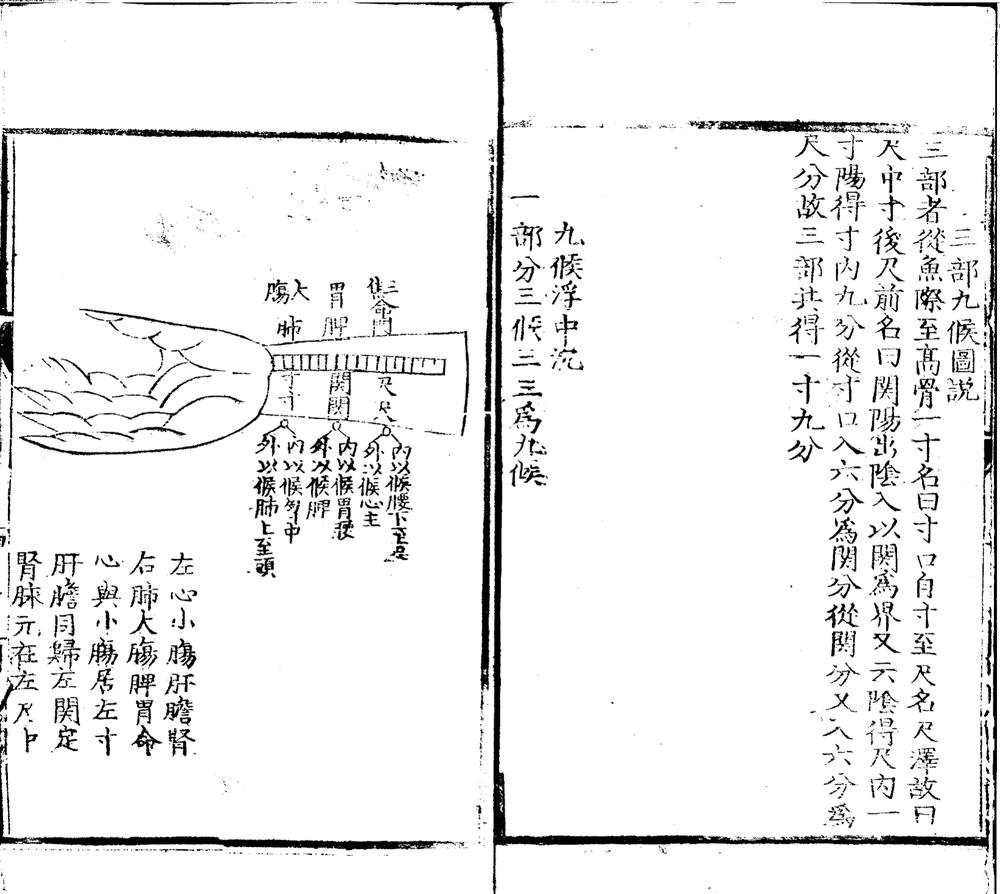 三部九候圖説
三部者從魚際至髙骨一寸名曰寸口自寸至尺名尺澤故曰
尺中寸後尺前名曰関陽出陰入以関爲界又云陰得尺内一
寸陽得寸内九分從寸口入六分爲関分從関分又入六分爲
尺分故三部共得一寸九分
九候浮中沉
一部分三候三三爲九候
三焦命門
胃脾
大腸肺
尺尺
関関
寸寸
内以候腰下至足
外以候心主
内以候胃
外以候脾
内以候胷中
外以候肺上至頭
左心小腸肝膽腎
右肺大腸脾胃命
心與小腸居左寸
肝膽同歸左関定
腎脉元在左尺中